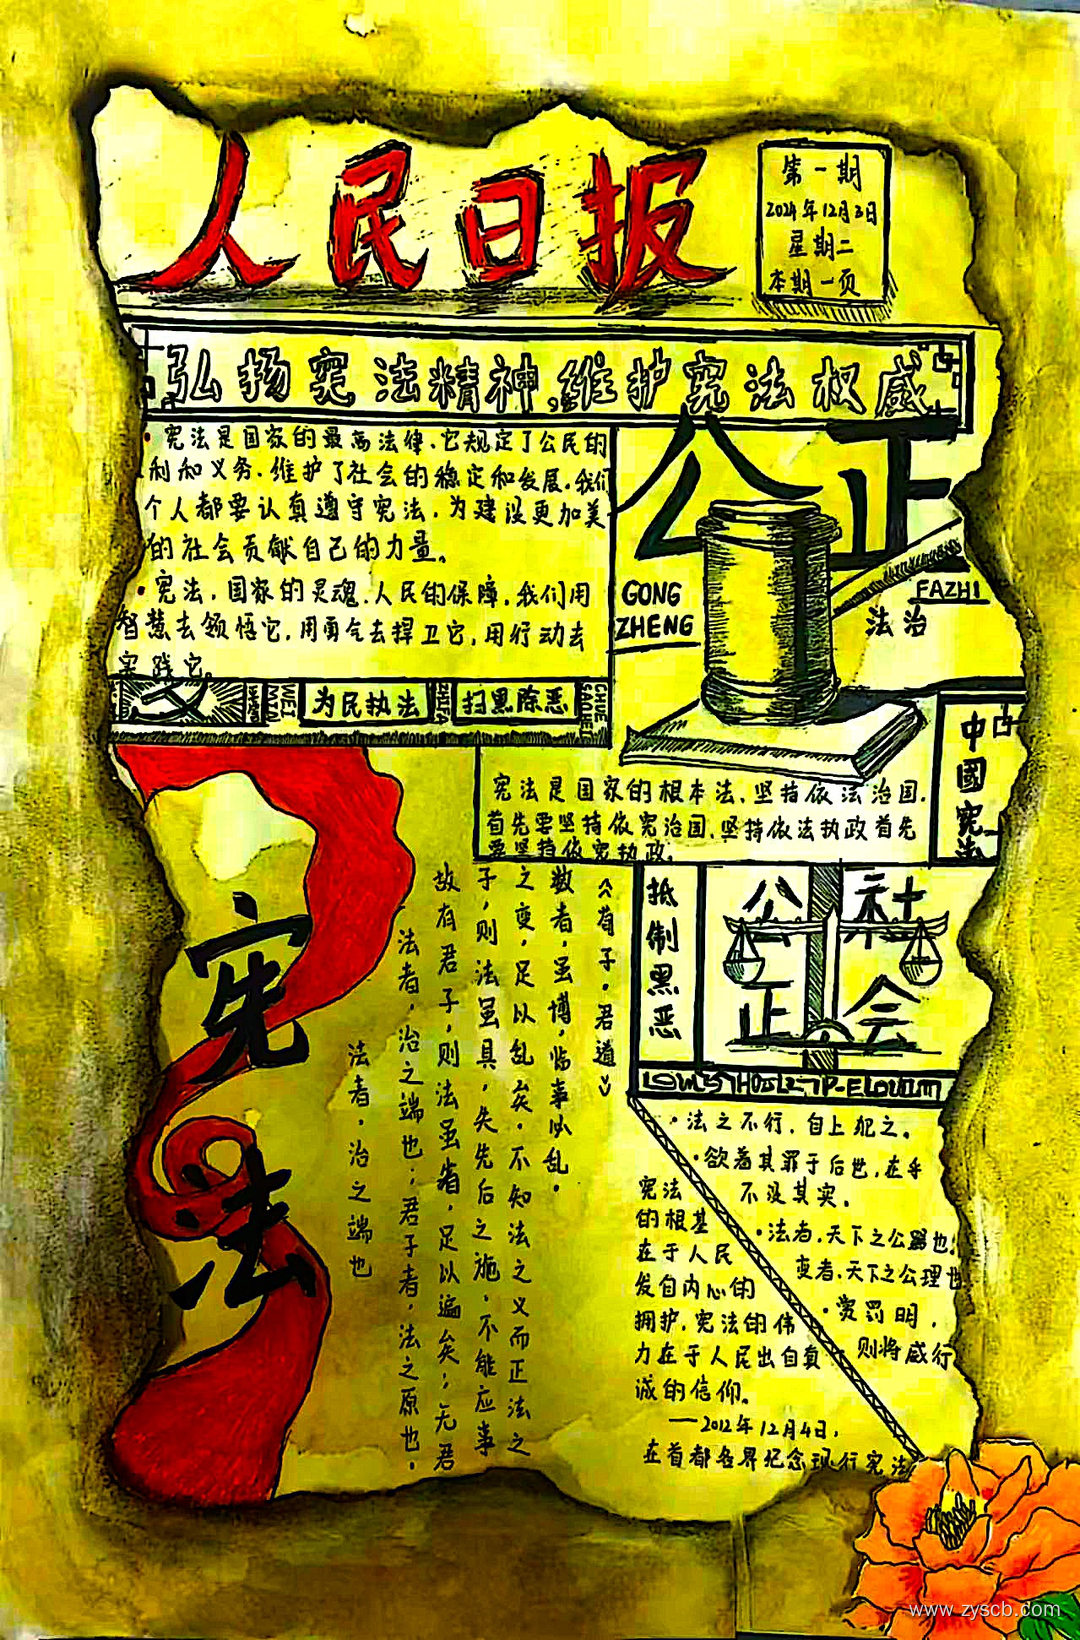 人民日报
第一期
2024年12月3日
星期二
本期一页
弘扬宪法精神,维护宪法权威
·宪法是国家的最高法律.它规定了公民的
利和义务.维护了社会的稳定和发展.我们
个人都要认真遵守宪法,为建设更加美
的社会贡献自己的力量。
·宪法,国家的灵魂.人民的保障.我们用
智慧去领悟它.用勇气去捍卫它,用行动去
实践它。
公正
GONG
ZHENG
FAZHI
法治
为民执法
扫黑除恶
中國宪法
宪法是国家的根本法.坚持依法治国.
首先要坚持依宪治国.坚持依法执政首先
要坚持依宪执政.
宪法
《荀子·君道》
数者,虽博,临事必乱.
之变,足以乱矣.不知法之义而正法之
子,则法虽具,失先后之施,不能应事
故有君子,则法虽省,足以遍矣;无君
法者,治之端也;君子者,法之原也.
法者,治之端也
抵制黑恶
公正
社会
·法之不行,自上犯之。
·欲着其罪于后世,在乎
不没其实.
·法者,天下之公器也;
变者,天下之公理也
·赏罚明,
则将威行
宪法
的根基
在于人民
发自内心的
拥护.宪法的伟
力在于人民出自真
诚的信仰。
——2012年12月4日,
在首都各界纪念现行宪法
www.zyscb.com